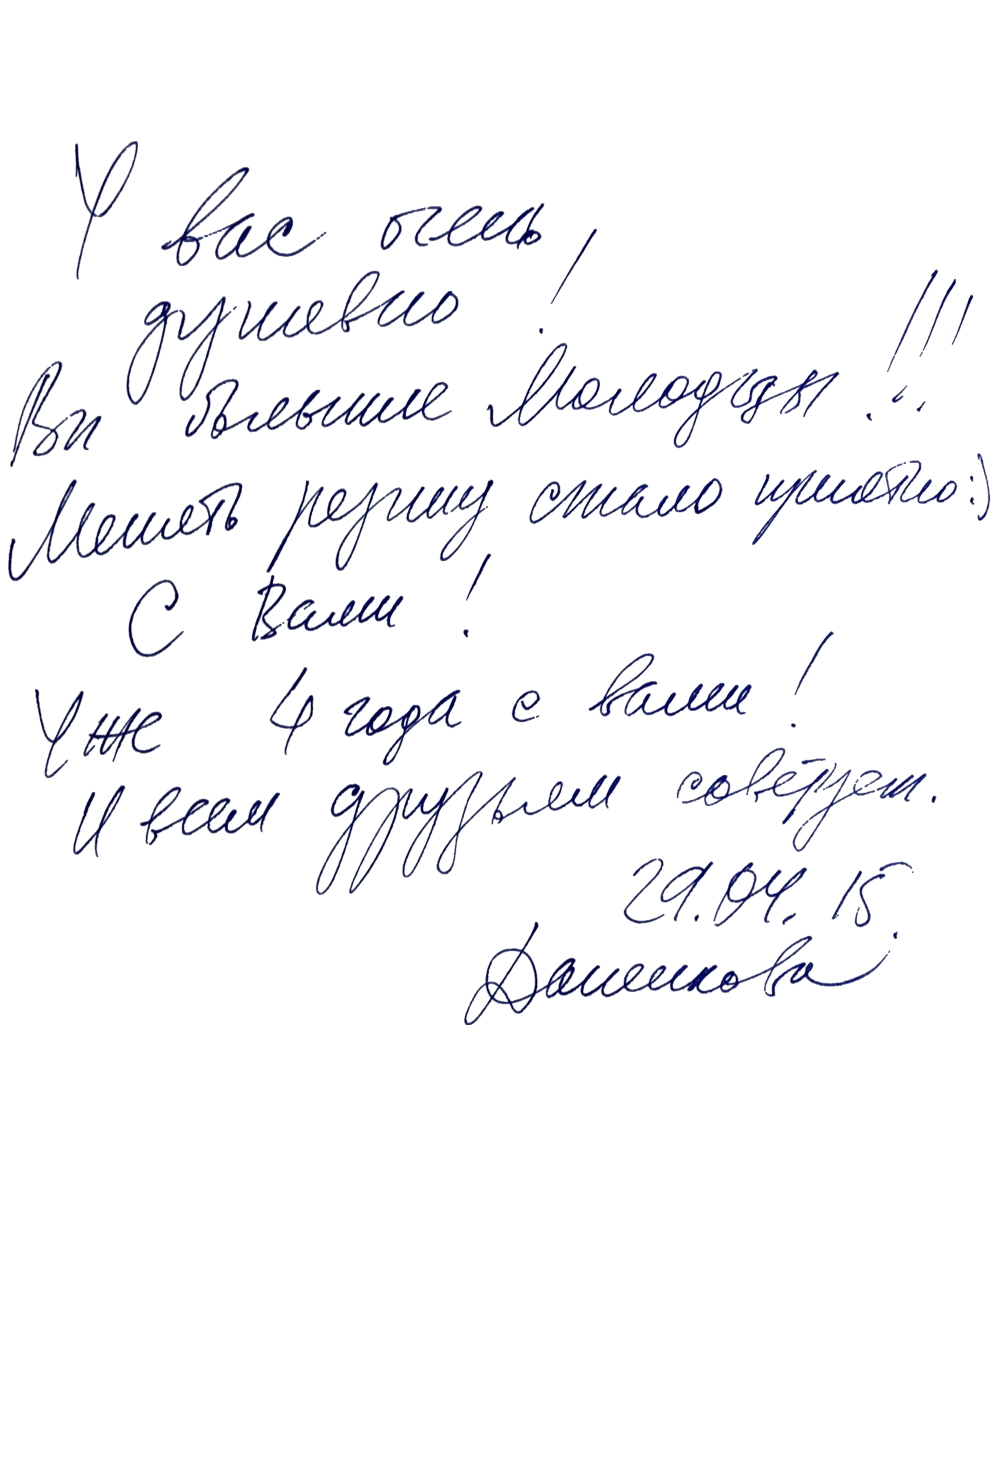 У вас очень
душевно!
Вы большие Молодцы!!!
Менять резину стало приятно:)
С Вами!
Уже 4 года с вами!
И всем друзьям советуем.
29.04.15.